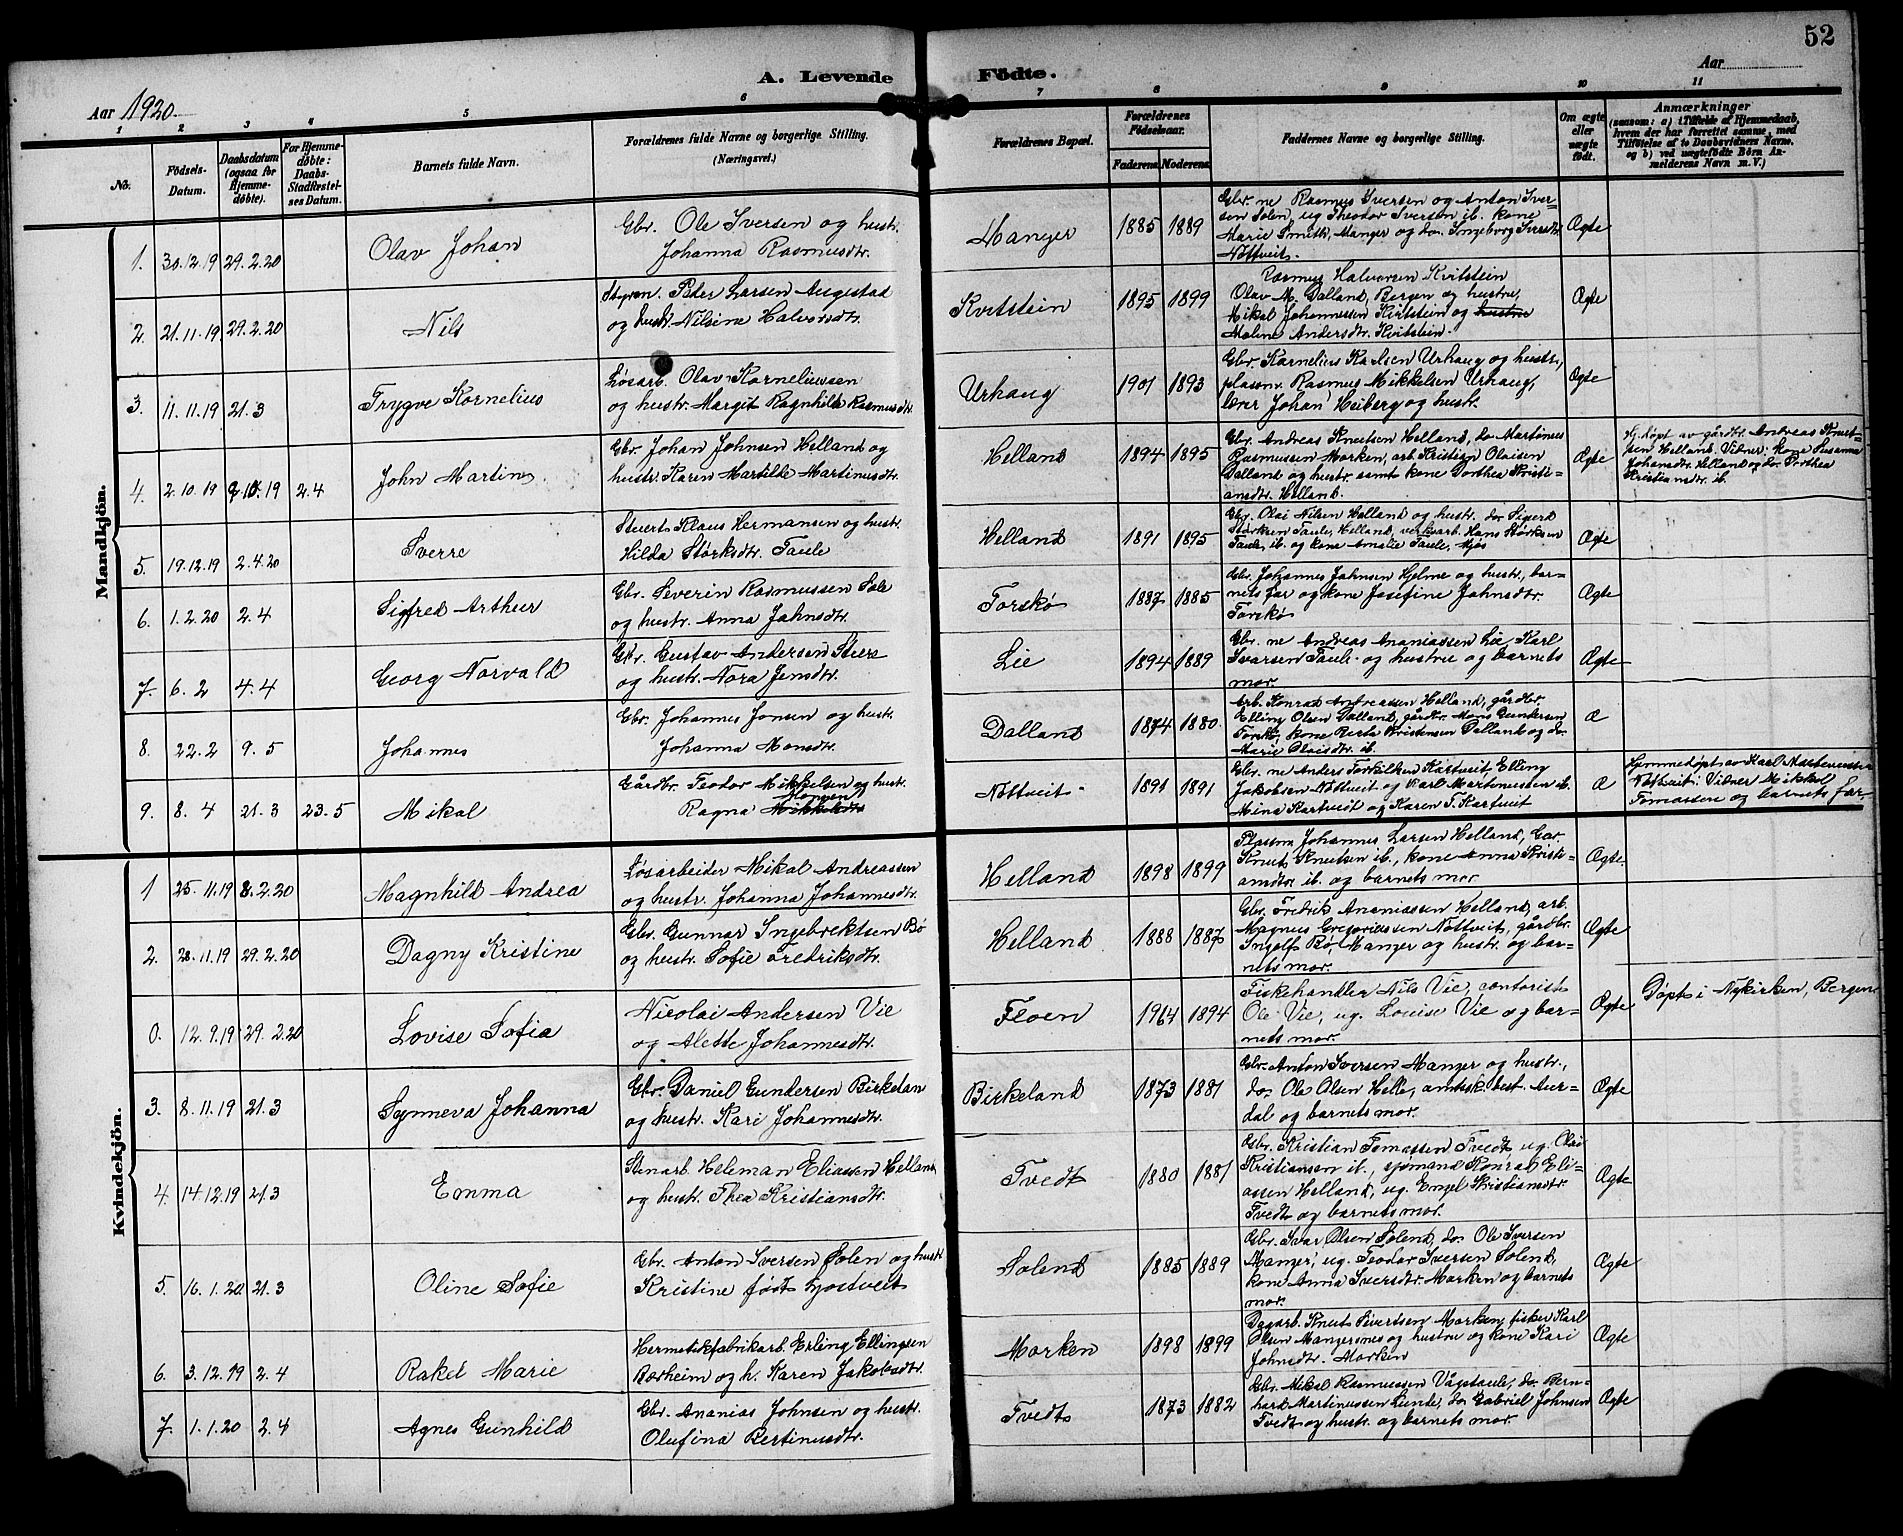 52
A. Levende Födte.
Aar 1920.
Aar
1 2 3 4 5 6 7 8 9 10 11
No.
Födsels-Datum.
Daabsdatum (ogsaa for Hjemmedøbte).
For Hjemmedöbte: Daabs-Stadfæstelses Datum.
Barnets fulde Navn.
Forældrenes fulde Navne og borgerlige Stilling. (Næringsvei.)
Forældrenes Bopæl.
Forældrenes Födselsaar.
Faderens. Moderens.
Faddernes Navne og borgerlige Stilling.
Om ægte eller uægte født.
Anmærkninger
(saasom: a) i Tilfælde af Hjemmedaab, hvem der har forrettet samme, med Tilföielse af to Daabsvidners Navne, og b) ved uægtefødte Börn Anmelderens Navn m. V.)
Mandkjön.
1. 30.12.19 29.2.20 Olav Johan
Gbr. Ole Iversen og hustr.
Johanna Rasmusdtr.
Manger 1885 1889
Gbr. ne Rasmus Iversen og Anton Iver-
sen Solen, ug Theodor Iversen ib. kone
Marie Smith, Manger og do. Ingeborg Iversdtr
Nöttveit.
Ægte
2. 21.11.19 29.2.20 Nils
Styrm. Peder Larsen Augestad
og hustr. Nilsine Halvorsdtr.
Kvitstein 1895 1899
Rasmus Halvorsen Kvitstein
Olav M. Dalland, Bergen og hustru,
Mikal Johannessen Kvitstein og hustru
Malene Andersdtr. Kvitstein.
Ægte
3. 11.11.19 21.3 Trygve Kornelius
Løsarb. Olav Korneliussen
og hustr. Margit Ragnhild Rasmusdtr
Urhaug 1901 1893
Gbr. Kornelius Karlsen Urhaug og hustr.,
plassm. Rasmus Mikkelsen Urhaug,
lærer Johan Heiberg og hustr.
Ægte
4. 2.10.19 9.10.19 2.4 John Martin
Gbr. Johan Johnsen Helland og
hustr. Karen Martilde Martinusdtr.
Helland 1894 1895
Gbr. Andreas Knutsen Helland, do Martinus
Rasmussen Morken, arb. Kristian Olaisen
Dalland og hustr. samt kone Dorthea Kristi-
ansdtr. Helland.
Ægte
Hj. døpt av gårdbr. Andreas Knut-
sen Helland. Vidner, kone Susanna
Johansdtr. Helland og do. Dorthea
Kristiansdtr. ib.
5. 19.12.19 2.4.20 Sverre
Stuert Klaus Hermansen og hustr.
Hilda Størksdtr. Taule
Helland 1891 1895
Gbr. Olai Nilsen Helland og hustr. do Sigurd
Størksen Taule, Helland, verksarb. Hans Størksen
Taule, ib. og kone Amalie Taule, Mjøs
Ægte
6. 1.2.20 2.4 Sigfred Arthur
Gbr. Severin Rasmussen Sæle
og hustr. Anna Jahnsdtr.
Torskø 1887 1885
Gbr. Johannes Jahnsen Hjelme og hustr., bar-
nets far og kone Josefine Jahnsdtr.
Torskø
Ægte
7. 6.2 4.4 Georg Norvald
Gbr. Gustav Andersen
og hustr. Nora Jensdtr.
Lie 1894 1889
Gbr. ne Andreas Ananiassen Lie Karl
Ivarsen Taule og hustru og barnets
mor.
Ægte
8. 22.2 9.5 Johannes
Gbr. Johannes Jonsen og hustr.
Johanna Monsdtr.
Dalland 1874 1880.
Arb. Konrad Andreassen Helland, gårdbr.
Elling Olsen Dalland, gårdbr. Mons Gundersen
Torskø, kone Berta Kristensen Dalland og do.
Marie Olaisdtr. ib.
Æ
9. 8.4 21.3 23.5 Mikal
Gårdbr. Teodor Mikkelsen og hustr.
Ragna Mikkelsdtr
Nöttveit 1891 1891
Gbr. ne Anders Torkilsen Kartveit Elling
Jakobsen Nöttveit og Karl Martinussen ib.
Mina Kartveit og Karen T. Kartveit
Æ
Hjemmedöpt av Karl Martinussen
Nöttveit: Vidner Mikkal
Tomassen og barnets far
Kvindekjön.
1 25.11.19 8.2.20 Magnhild Andrea
Løsarbeider Mikal Andreassen
og hustr. Johanna Johannesdtr.
Helland 1898 1899
Plassm. Johannes Larsen Helland, Gbr.
Knut Knutsen ib., kone Anna Kristi-
ansdtr ib. og barnets mor.
Ægte.
2. 28.11.19 29.2.20 Dagny Kristine
Gbr. Gunnar Ingebrektsen Bø
og hustr. Sofie Fredriksdtr.
Helland 1888 1887
Gbr. Fredrik Ananiassen Helland, arb.
Magnus Gregoriussen Nöttveit, gårdbr.
Ingolf Bø, Manger og hustr. og bar-
nets mor.
Ægte
0. 12.9.19 29.2.20 Lovise Sofia
Nicolai Andersen Vie
og Alette Johannesdtr.
Floen 1964 1894
Fiskehandler Nils Vie, contorist
Ole Vie, ug. Louise Vie og bar-
nets mor.
Ægte
Døpt i Nykirken, Bergen
3. 8.11.19 21.3 Synneva Johanna
Gbr. Daniel Gundersen Birkelan
og hustr. Kari Johannesdtr.
Birkeland 1873 1881
Gbr. Anton Iversen Manger og hustr.,
do. Ole Olsen Helle, amtsk.best. Aur-
dal og barnets mor.
Ægte
4. 14.12.19 21.3 Emma
Stenarb. Heleman Eliassen Helland
og hustr. Thea Kristiansdtr.
Tvedt 1880 1881
Gbr. Kristian Tomassen Tvedt ug. Olai
Kristiansen ib., sjømand Konrad Eli-
assen Helland, ug. Engel Kristiansdtr.
Tvedt og barnets mor.
Ægte
5. 16.1.20 21.3 Oline Sofie
Gbr. Anton Iversen Solen og hustr
Kristine født Hjortveit
Solend 1885 1889
Gbr. Ivar Olsen Solend, do. Ole Iversen
Manger, ug. Teodor Iversen Solend,
kone Anna Iversdtr. Morken og barnets
mor.
Ægte
6. 3.12.19 2.4 Rakel Marie
Hermetikfabrikarb. Erling Ellingsen
Bærheim og h. Karen Jakobsdtr.
Morken 1898 1899
Dagarb. Knut Sivertsen Morken, fisker Karl
Olsen Mangersnes og hustru og kone Kari
Johnsdtr. Morken
Ægte
7. 1.1.20 2.4 Agnes Gunhild
Gbr. Ananias Johnsen og hustr.
Olufina Bertinusdtr.
Tvedt 1873 1882
Gbr. Mikal Rasmussen Vågstaule, do. Bern-
hard Martinussen Lunde, do Gabriel Johnsen
Tvedt og hustr. og barnets mor.
Ægte